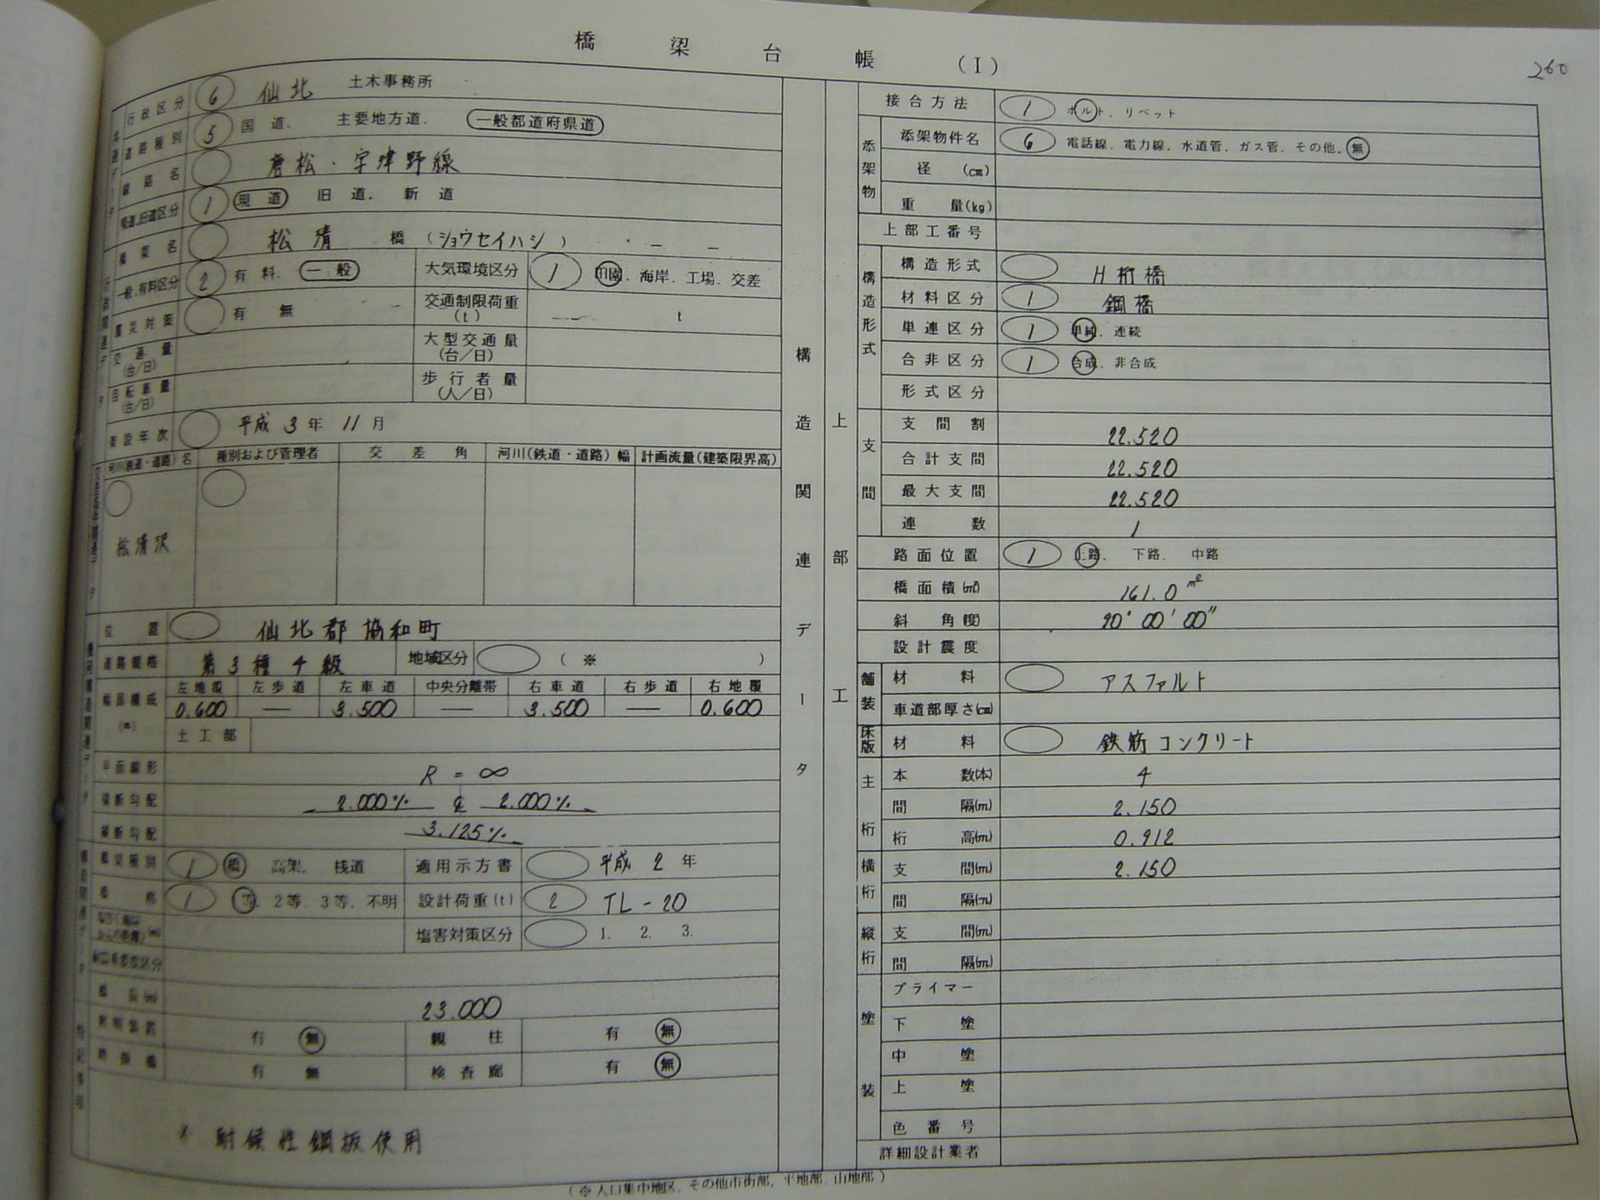 橋梁台帳 (I)
260
行政区分 6 仙北 土木事務所
道路種別 5 国道. 主要地方道. 一般都道府県道
路線名 唐松・宇津野線
現道.旧道区分 1 現道 旧道. 新道
橋梁名 松清 橋 (ショウセイハシ)
一般.有料区分 2 有料. 一般 大気環境区分 1 田園. 海岸. 工場. 交差
震災対策 有 無 交通制限荷重(t) — t
交通量(台/日) 大型交通量(台/日)
自転車量(台/日) 歩行者量(人/日)
架設年次 平成3年11月
河川(鉄道・道路)名 種別および管理者 交差角 河川(鉄道・道路)幅 計画流量(建築限界高)
松清沢
位置 仙北郡協和町
道路規格 第3種4級 地域区分 (※ )
幅員構成(m) 左地覆 左歩道 左車道 中央分離帯 右車道 右歩道 右地覆
0.600 — 3.500 — 3.500 — 0.600
土工部
平面線形 R=∞
横断勾配 2.000% ℄ 2.000%
縦断勾配 3.125%
橋梁種別 1 橋 高架. 桟道 適用示方書 平成2年
橋格 1 1等. 2等. 3等. 不明 設計荷重(t) 2 TL-20
塩害対策区分 1. 2. 3.
橋長(m) 23.000
照明装置 有 無 親柱 有 無
有 無 検査廊 有 無
特記事項
耐候性鋼板使用
構造関連データ
上部工
接合方法 1 ボルト. リベット
添架物 添架物件名 6 電話線. 電力線. 水道管. ガス管. その他. 無
径 (cm)
重量(kg)
上部工番号
構造形式 構造形式 H桁橋
材料区分 1 鋼橋
単連区分 1 単純. 連続
合非区分 1 合成. 非合成
形式区分
支間 支間割 22.520
合計支間 22.520
最大支間 22.520
連数 1
路面位置 1 上路. 下路. 中路
橋面積(㎡) 161.0 m²
斜角(度) 90°00′00″
設計震度
舗装 材料 アスファルト
車道部厚さ(cm)
床版 材料 鉄筋コンクリート
主桁 本数(本) 4
間隔(m) 2.150
桁高(m) 0.912
横桁 支間(m) 2.150
間隔(m)
縦桁 支間(m)
間隔(m)
塗装 プライマー
下塗
中塗
上塗
色番号
詳細設計業者
(※人口集中地区. その他市街部. 平地部. 山地部)